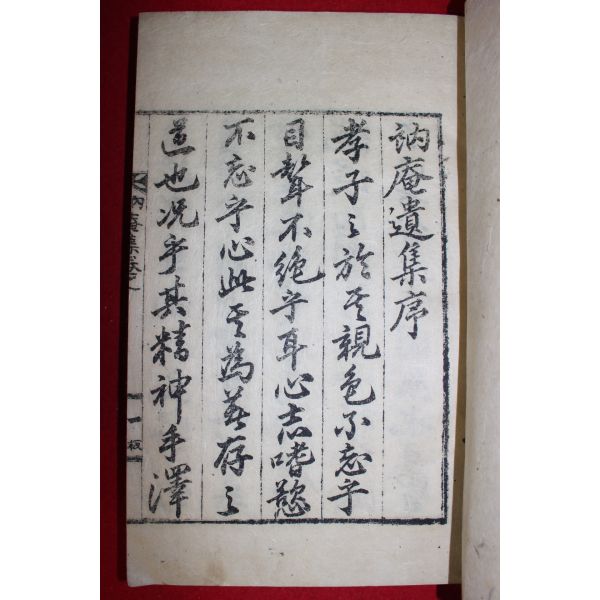 訥庵遺集序
孝子之於其親色不忘乎
目聲不絶乎耳心志嗜慾
不忘乎心此其爲著存之
道也況乎其精神手澤
訥庵集卷之
一 板